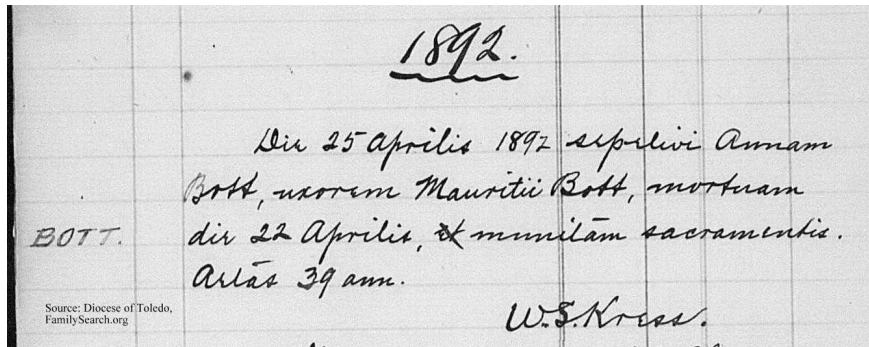 1892.
Die 25 Aprilis 1892 sepelivi Annam
Bott, uxorem Mauritii Bott, mortuam
BOTT.
die 22 Aprilis, munitam sacramentis.
Aetas 39 ann.
W.S. Kress.
Source: Diocese of Toledo,
FamilySearch.org